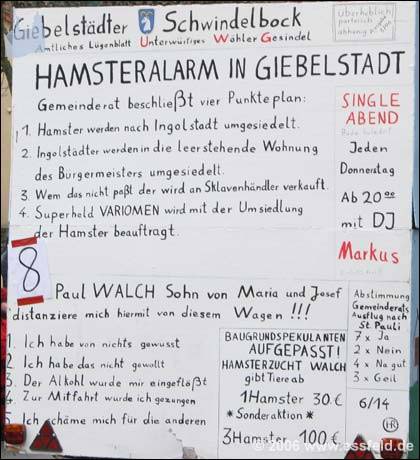 Giebelstädter Schwindelbock
Amtliches Lügenblatt Unterwürfiges Wähler Gesindel
Überheblich
parteiisch
abhängig
HAMSTERALARM IN GIEBELSTADT
Gemeinderat beschließt vier Punkteplan:
1. Hamster werden nach Ingolstadt umgesiedelt.
2. Ingolstädter werden in die leerstehende Wohnung
des Bürgermeisters umgesiedelt.
3. Wem das nicht paßt der wird an Sklavenhändler verkauft.
4. Superheld VARIOMEN wird mit der Umsiedlung
der Hamster beauftragt.
SINGLE
ABEND
Jeden
Donnerstag
Ab 20 00
mit DJ
Markus
8
Paul WALCH Sohn von Maria und Josef
distanziere mich hiermit von diesem Wagen !!!
1. Ich habe von nichts gewusst
2. Ich habe das nicht gewollt
3. Der Alkohl wurde mir eingeflößt
4. Zur Mitfahrt wurde ich gezungen
5. Ich schäme mich für die anderen
BAUGRUNDSPEKULANTEN
AUFGEPASST!
HAMSTERZUCHT WALCH
gibt Tiere ab
1Hamster 30 €
*Sonderaktion*
3Hamster 100 €
Abstimmung
Gemeinderats
Ausflug nach
St Pauli
7 x Ja
2 x Nein
4 x Na gut
3 x Geil
6/14
HR
© 2006 www.essfeld.de